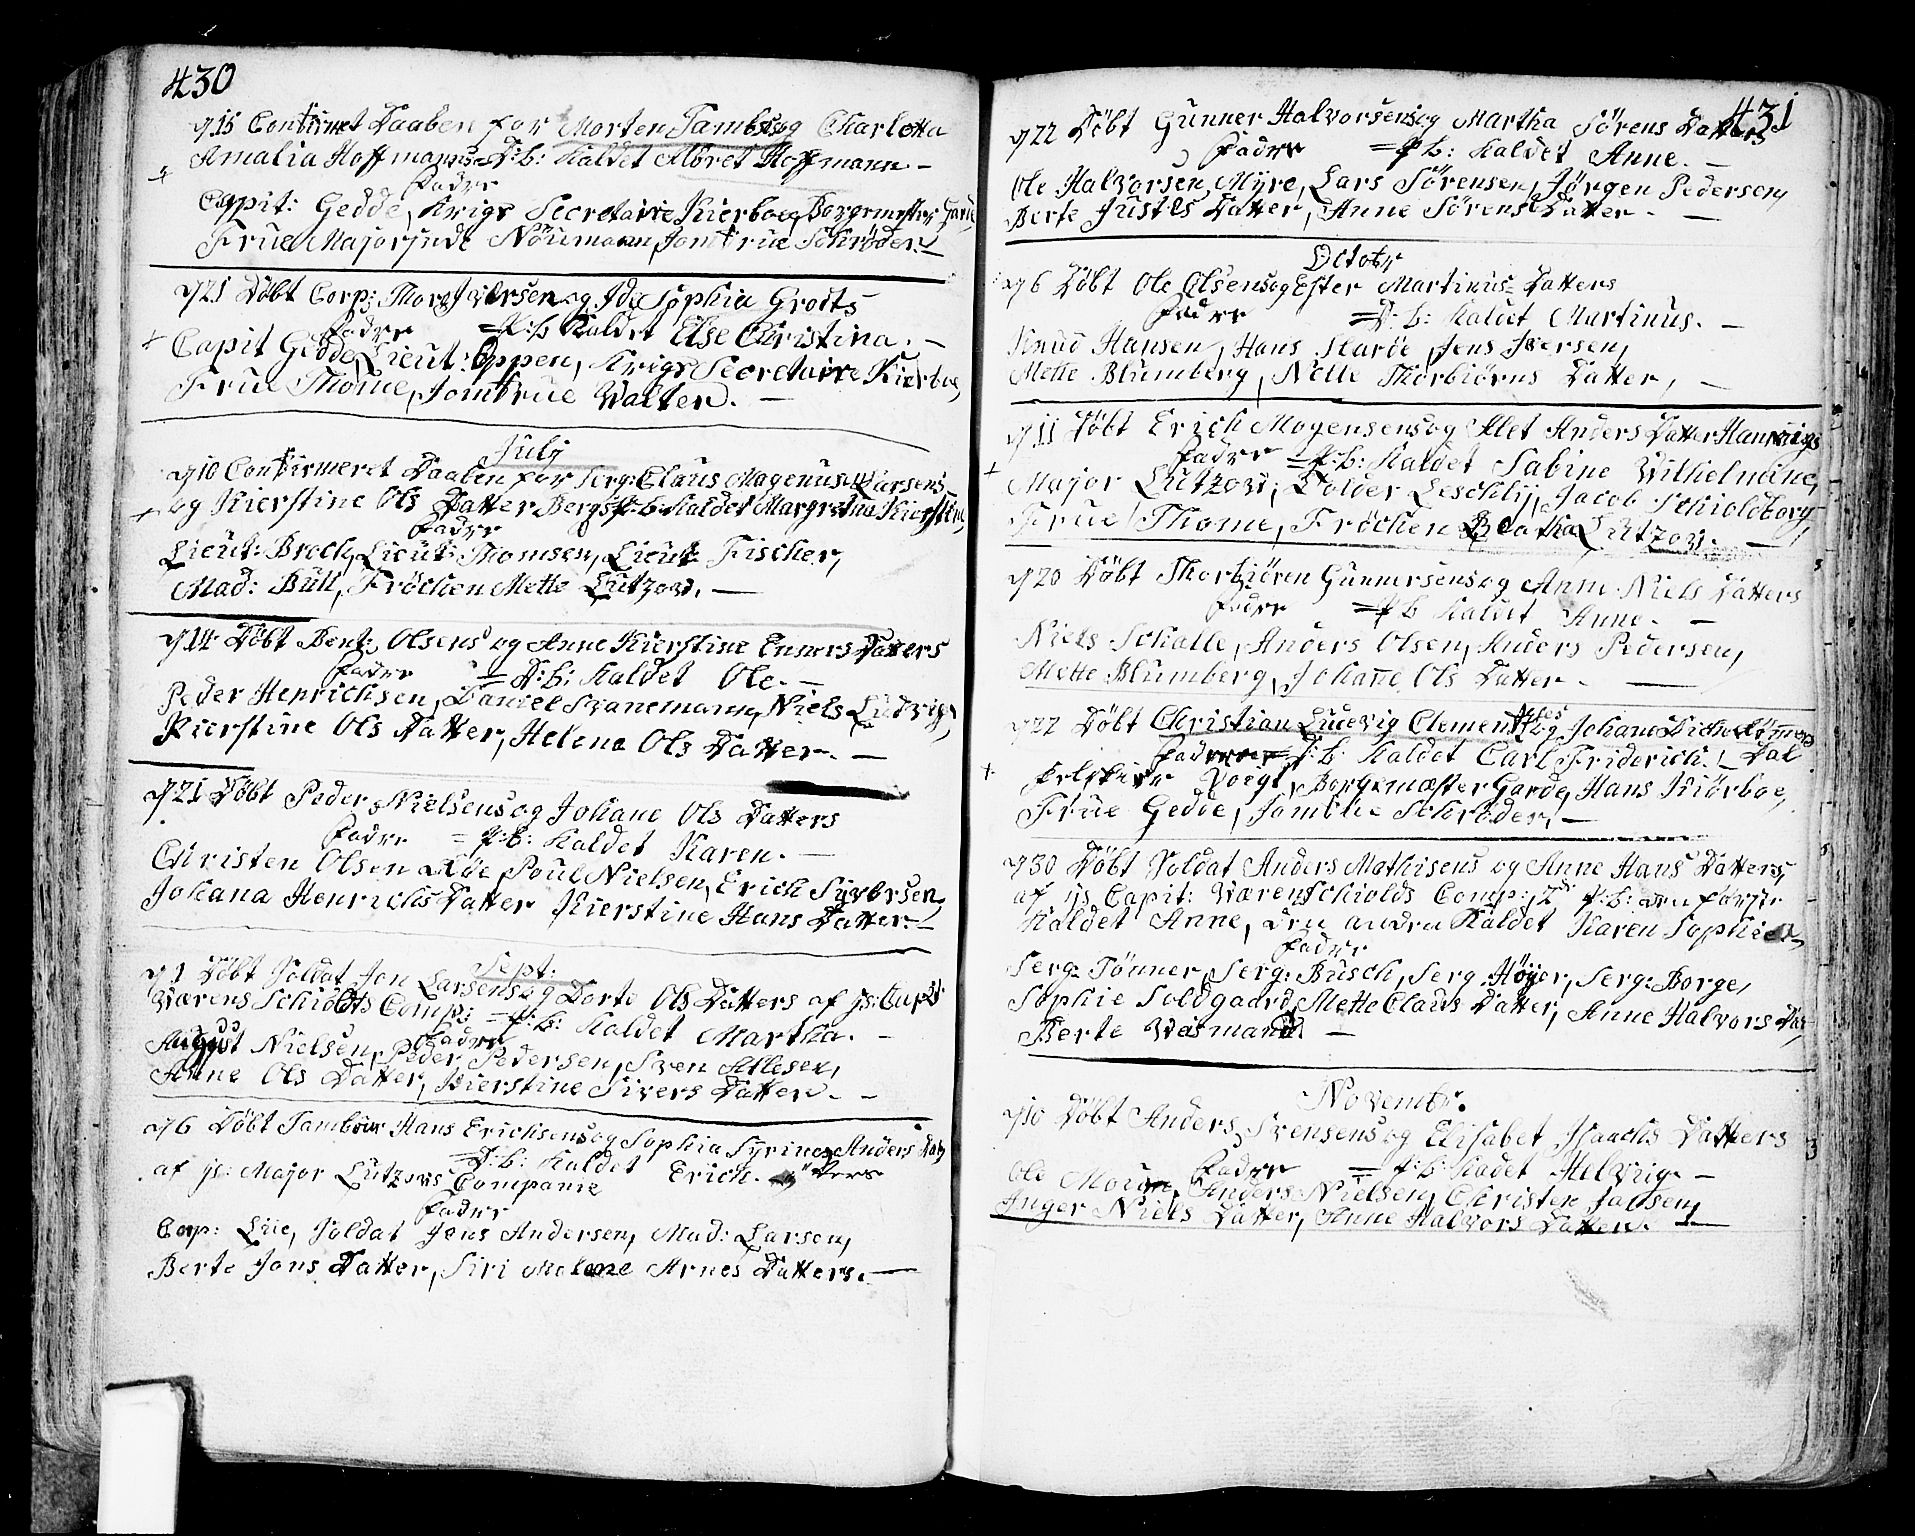 430
d 15 Confirmet Daaben for Morten Tambs og Charlotta
Amalia Hoffmanns D:b: Kaldet Albret Hoffmann. –
Fadre
Capit: Gedde, Krigs Secretaire Kierboe, Borgemester Garde
Frue Majorinde Nöumann, Jomfrue Schröder. –
d 21 Döbt Corp: Thore Iversen og Ide Sophia Grodts
Fadre = P:b Kaldet Else Christina. –
Capit Gedde, Lieut: Oppen, Krigs Secretaire Kierboe,
Frue Thome, Jomfrue Walter. –
July
d 10 Confirmeret Daaben for Serg: Claus Magenus Larsens
og Kierstine Ols Datter Bergs P:b: Kaldet Margretha Kierstine,
Fadre
Lieut: Brock, Lieut: Thomsen, Lieut: Fischer,
Mad: Bull, Fröchen Mette Lutzow. –
d 14 Döbt Bent Olsens og Anne Kierstine Enners Datters
Fadre = D:b: Kaldet Ole. –
Peder Henrichsen, Daniel Svanemann, Niels Ludvigs,
Kierstine Ols Datter, Helena Ols Datter. –
d 21 Döbt Peder Nielsens og Johane Ols Datters
Fadre = P:b: Kaldet Karen. –
Christen Olsen Löe, Poul Nielsen, Erich Syversen,
Johana Henrichs Datter Kierstine Hans Datter. –
Sept:
d 1 Döbt Soldat Jon Larsens og Dorte Ols Datters af js: Capt:
Værenschiolds Comp: = P:b: Kaldet Martha. –
Fadre
August Nielsen, Peder Pedersen, Sven Allesen,
Anne Ols Datter, Kierstine Sivers Datter. –
d 6 Döbt Tambour Hans Erichsens og Sophia Syrina Anders Dat
= D:b: Kaldet Erich. " ters
af js: Major Lutzows Companie
Fadre
Corp: Lue, Soldat Jens Andersen, Mad: Larsen,
Berte Jons Datter, Siri Malene Arnes Datters. –
431
d 22 Döbt Gunner Halvorsens og Martha Sörens Datters
Fadre = P:b: Kaldet Anne. –
Ole Halvorsen Myre, Lars Sörensen, Jörgen Pedersen,
Berte Justes Datter, Anne Sörens Datter. –
Octobr
d 6 Döbt Ole Olsens og Ester Martinus Datters
Fadre = D:b: Kaldet Martinus. –
Knud Hansen, Hans Skaröe, Jens Iversen,
Mette Blumberg, Nelle Thorbiörns Datter, –
d 11 Döbt Erich Mogensens og Alet Anders Datter Hannings
Fadre = P:b: Kaldet Sabine Wilhelmine,
Major Lutzow, Tolder Leschly, Jacob Schioldborg,
Frue Thome, Fröchen Beatha Lutzow. –
d 20 Döbt Thorbiören Gunnersens og Anne Niels Datters
Fadre = P:b Kaldet Anne. –
Niels Schalle, Anders Olsen, Anders Pedersen,
Mette Blumberg, Johane Ols Datter. –
d 22 Döbt Christian Ludevig Clements og Johane Dich
Fadre = P:b: Kaldet Carl Friderich. –
Voigt, Borgemæster Garde, Hans Kiörboe,
Frue Gedde, Jomfrue Schröder. –
d 30 Döbt Soldat Anders Mathisens og Anne Hans Datters,
af js Capit: Værenschiolds Comp: 2de P:b: den förste
Kaldet Anne, den anden Kaldet Karen Sophie,
Fadre
Serg: Tönner, Serg: Busch, Serg: Höyer, Serg: Borge,
Sophie Soldgaard, Mette Claus Datter, Anne Halvors Dat,
Berte Wesmand. –
Novembr.
d 10 Döbt Anders Svensens og Elisabet Isaachs Datters
Fadre = P:b: Kaldet Helvrig. –
Ole Moum, Anders Nielsen, Christen Jabsen,
Inger Niels Datter, Anne Halvors Datter. –